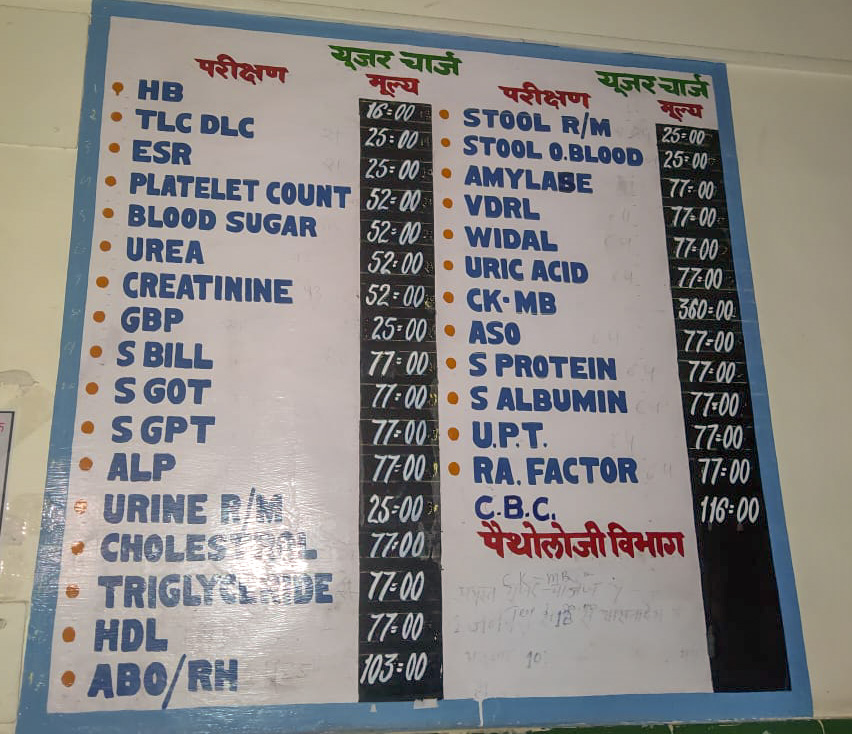 परीक्षण यूजर चार्ज
मूल्य
HB 16=00
TLC DLC 25=00
ESR 25=00
PLATELET COUNT 52=00
BLOOD SUGAR 52=00
UREA 52=00
CREATININE 52=00
GBP 25=00
S BILL 77=00
S GOT 77=00
S GPT 77=00
ALP 77=00
URINE R/M 25=00
CHOLESTROL 77=00
TRIGLYCERIDE 77=00
HDL 77=00
ABO/RH 103=00
परीक्षण यूजर चार्ज
मूल्य
STOOL R/M 25=00
STOOL O.BLOOD 25=00
AMYLASE 77=00
VDRL 77=00
WIDAL 77=00
URIC ACID 77=00
CK·MB 360=00
ASO 77=00
S PROTEIN 77=00
S ALBUMIN 77=00
U.P.T. 77=00
RA. FACTOR 77=00
C.B.C. 116=00
पैथोलोजी विभाग